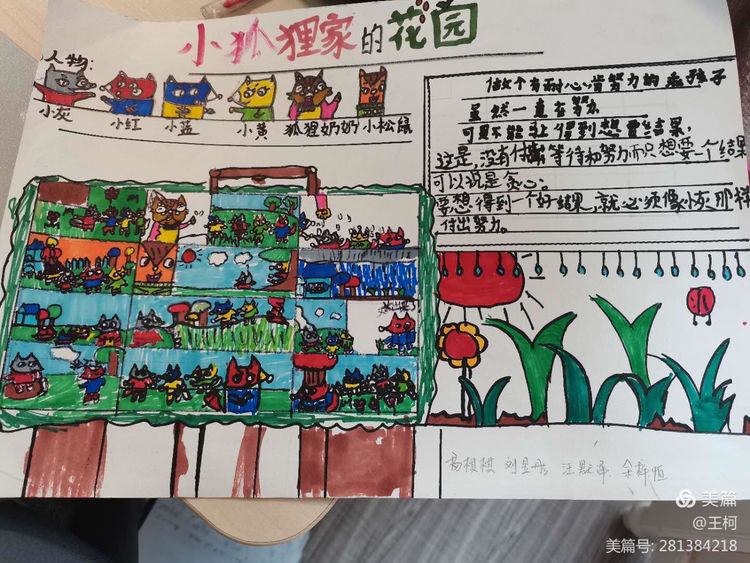 小狐狸家的花园
人物:
小灰
小红
小蓝
小黄
狐狸奶奶
小松鼠
做个有耐心肯努力的乖孩子
虽然一直在努力
可是不能让得到想要结果,
这是没有付出等待和努力而只想要一个结果
可以说是贪心。
要想得到一个好结果,就必须像小灰那样
付出努力。
美篇
@王柯
美篇号: 281384218